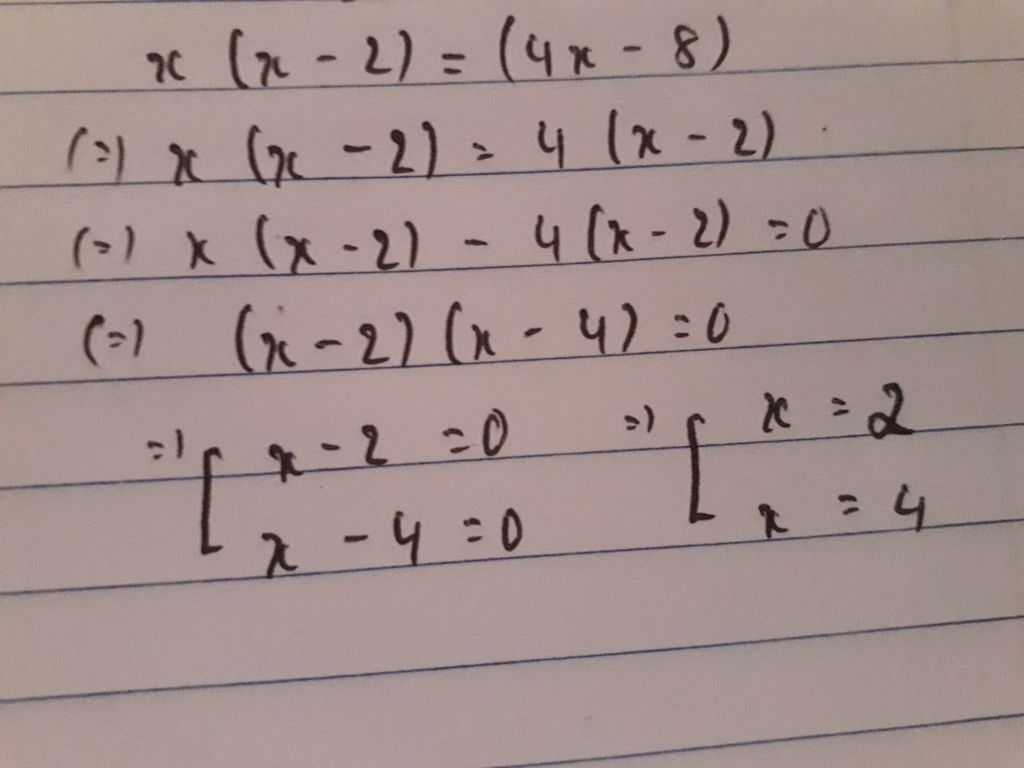 x (x - 2) = (4x - 8)
(=) x (x - 2) = 4 (x - 2)
(=) x (x - 2) - 4 (x - 2) = 0
(=) (x - 2) (x - 4) = 0
=) [ x - 2 = 0 =) [ x = 2
x - 4 = 0 x = 4